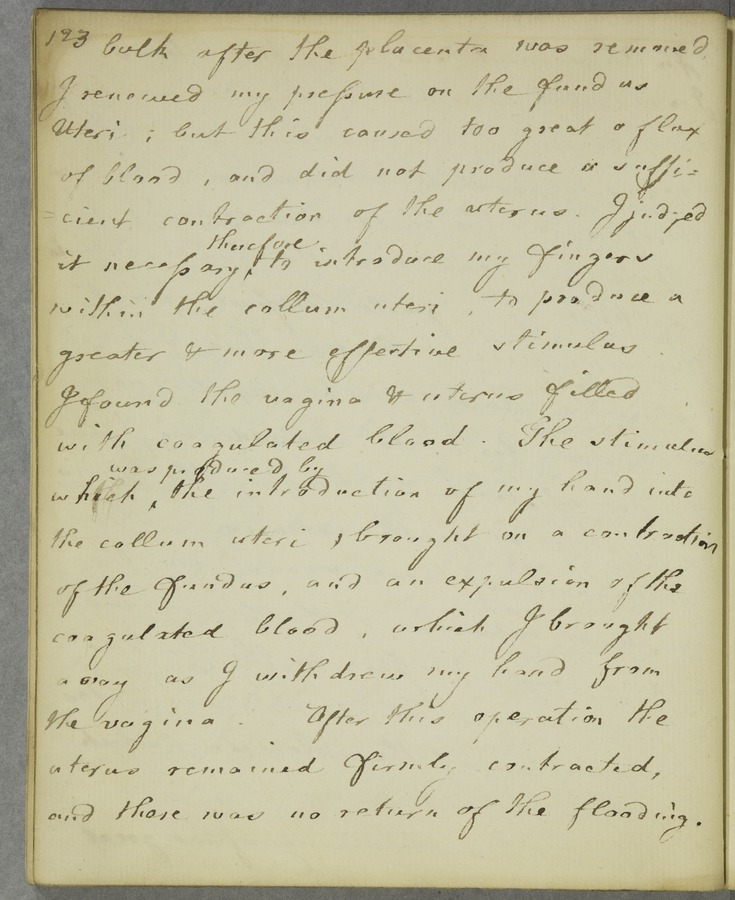 123 bulk after the placenta was removed
I renewed my pressure on the fundus
Uteri ; but this caused too great a flux
of blood , and did not produce a suffi=
=cient contraction of the uterus. I judged
therefore
it necessary, to introduce my fingers
within the collum uteri , to produce a
greater & more effective stimulus .
I found the vagina & uterus filled
with coagulated blood . The stimulus
was produced by
which the introduction of my hand into
the collum uteri , brought on a contraction
of the fundus, and an expulsion of the
coagulated blood , which I brought
away as I withdrew my hand from
the vagina . After this operation the
uterus remained firmly contracted,
and there was no return of the flooding.